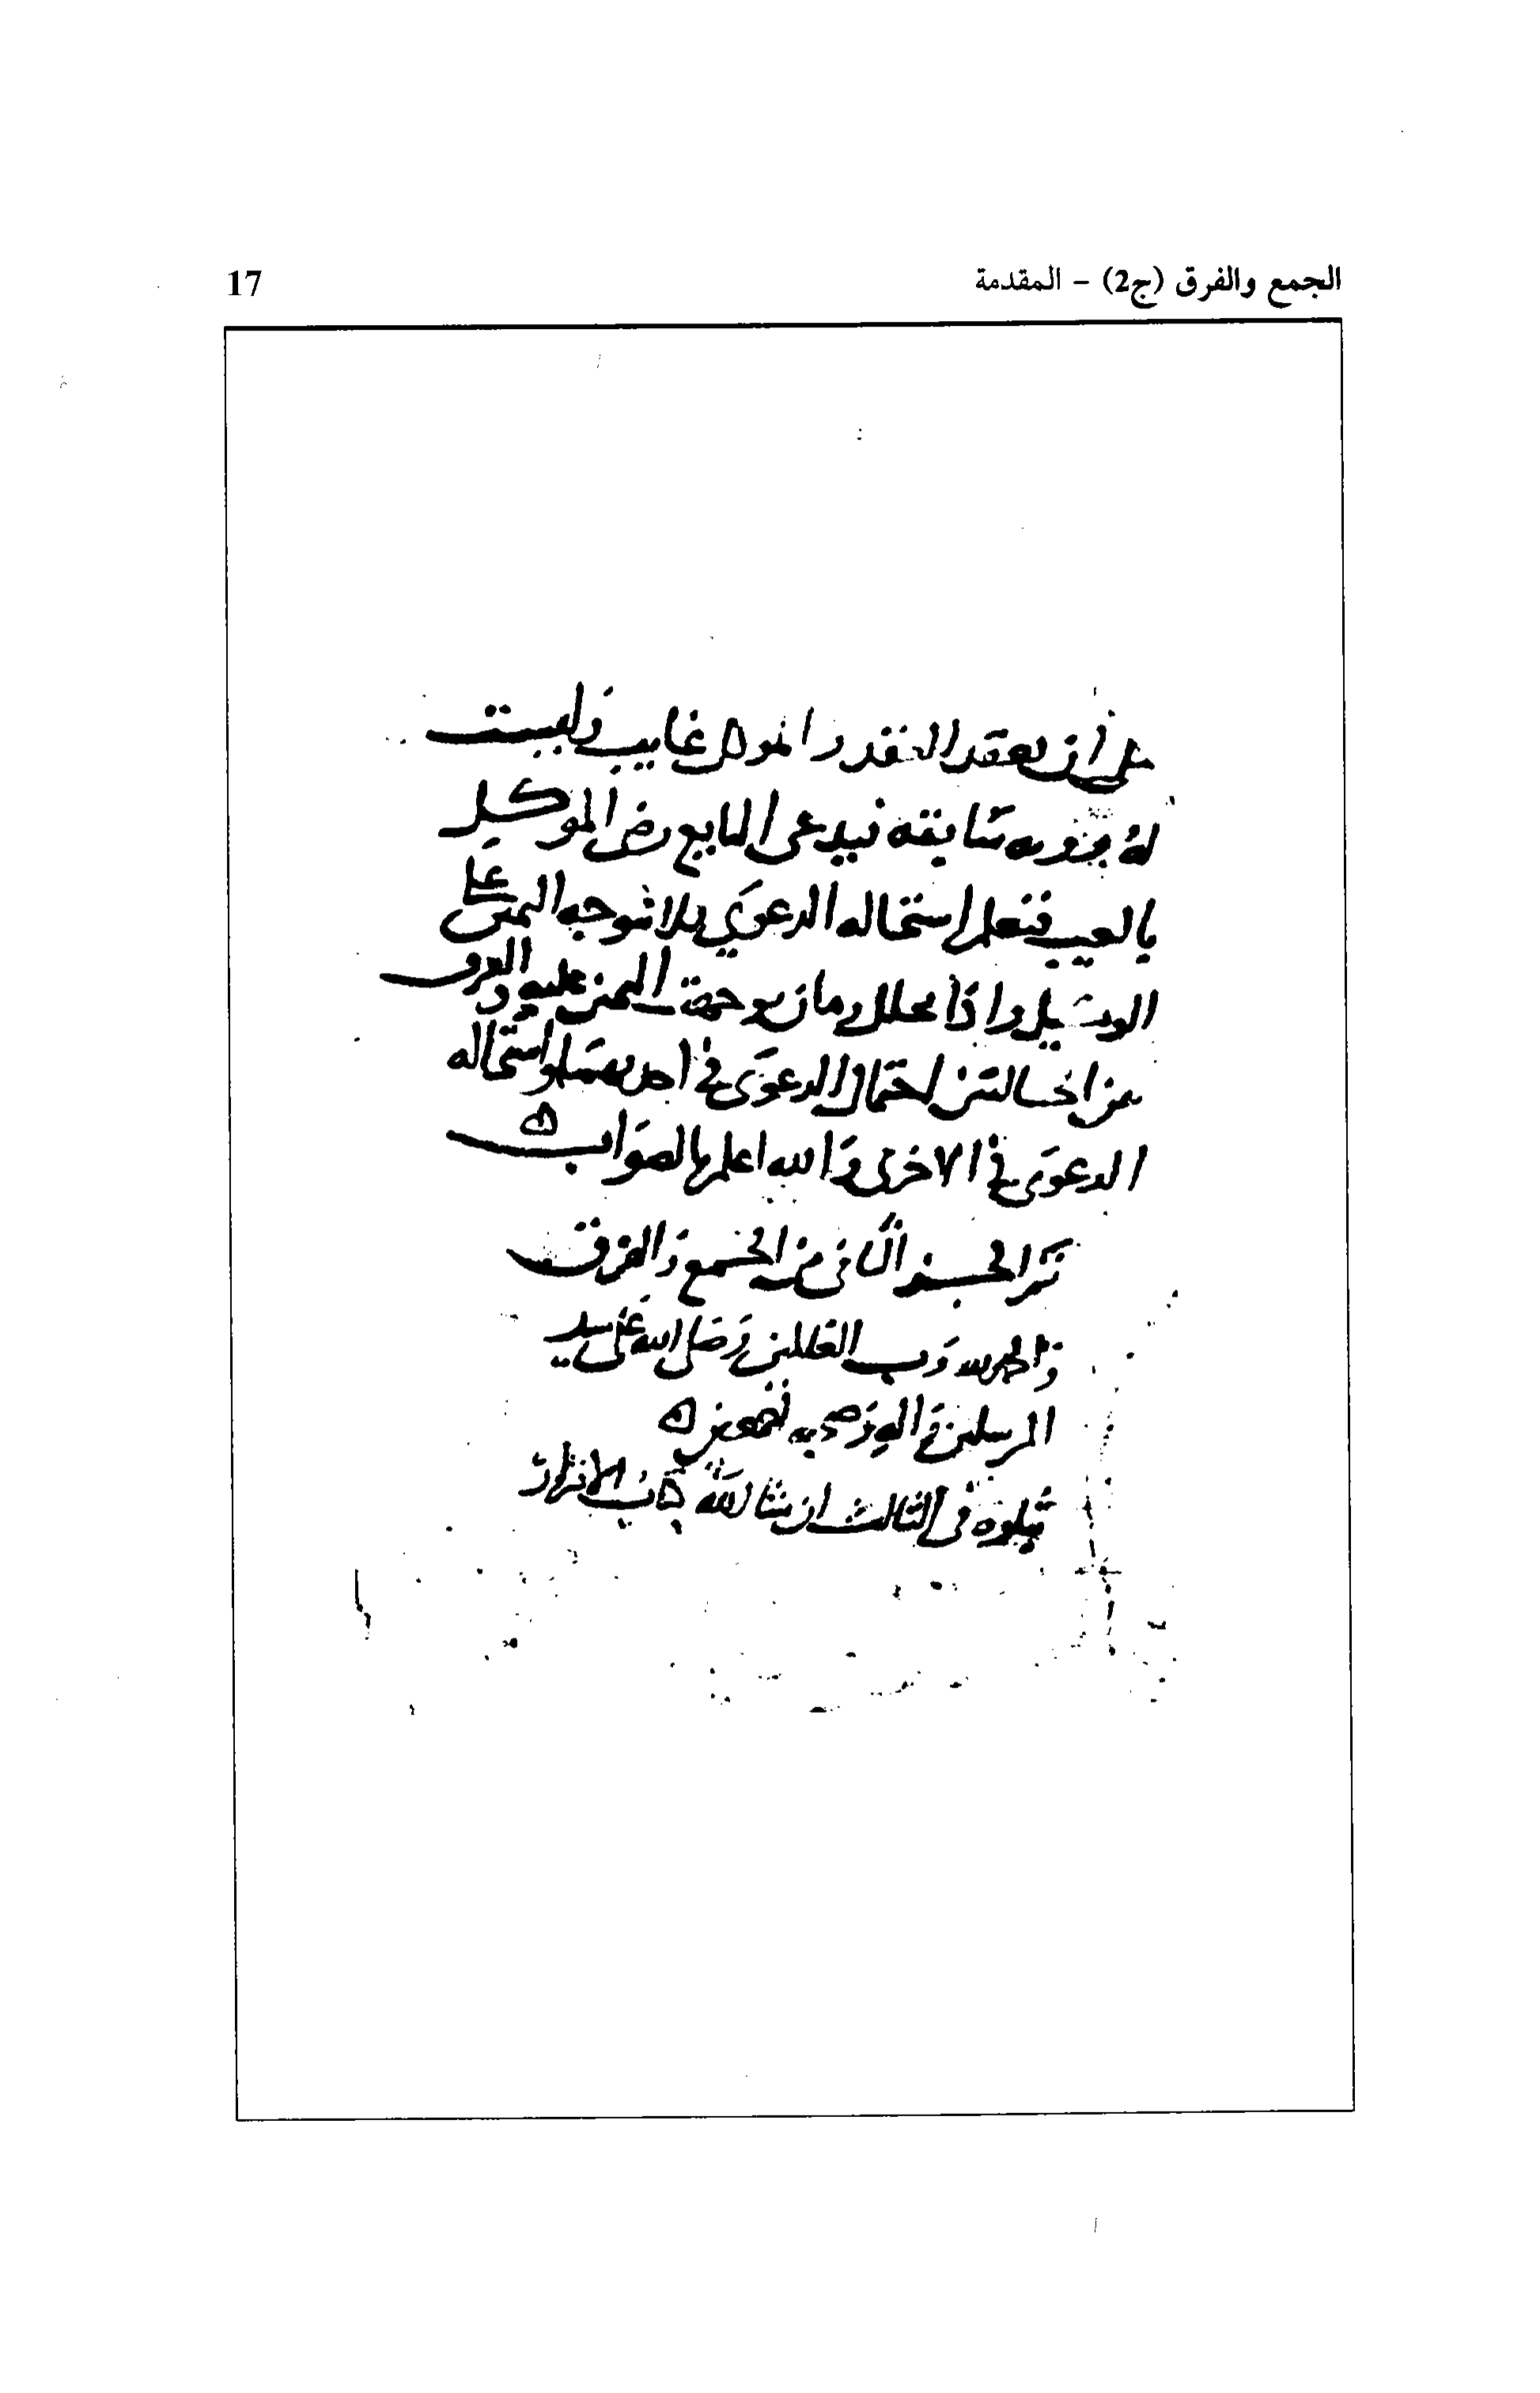 الجمع والفرق (ج2) - المقدمة
17
على ان يعقد العقد والموكل غايب وليست
له رويه سابقه فيدعى البايع رضى الموكل
بالعيب فنعلم استحاله الدعوى فلا توجه اليمين على
الوكيل واذا تخلل زمان توجهت اليمين عليه والفرق
بين الحالتين احتمال الدعوى في احديهما واستحاله
الدعوى في الاخرى والله اعلم بالصواب
تم الجزء الثاني من الجمع والفرق
والحمد لله رب العالمين وصلى الله على سيد
المرسلين واله وصحبه اجمعين
يتلوه في الثالث ان شا الله كتاب الاقرار